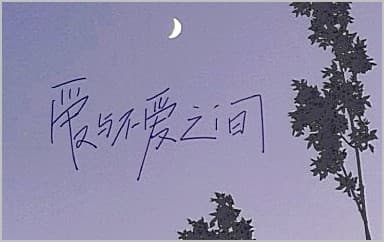 爱与不爱之间